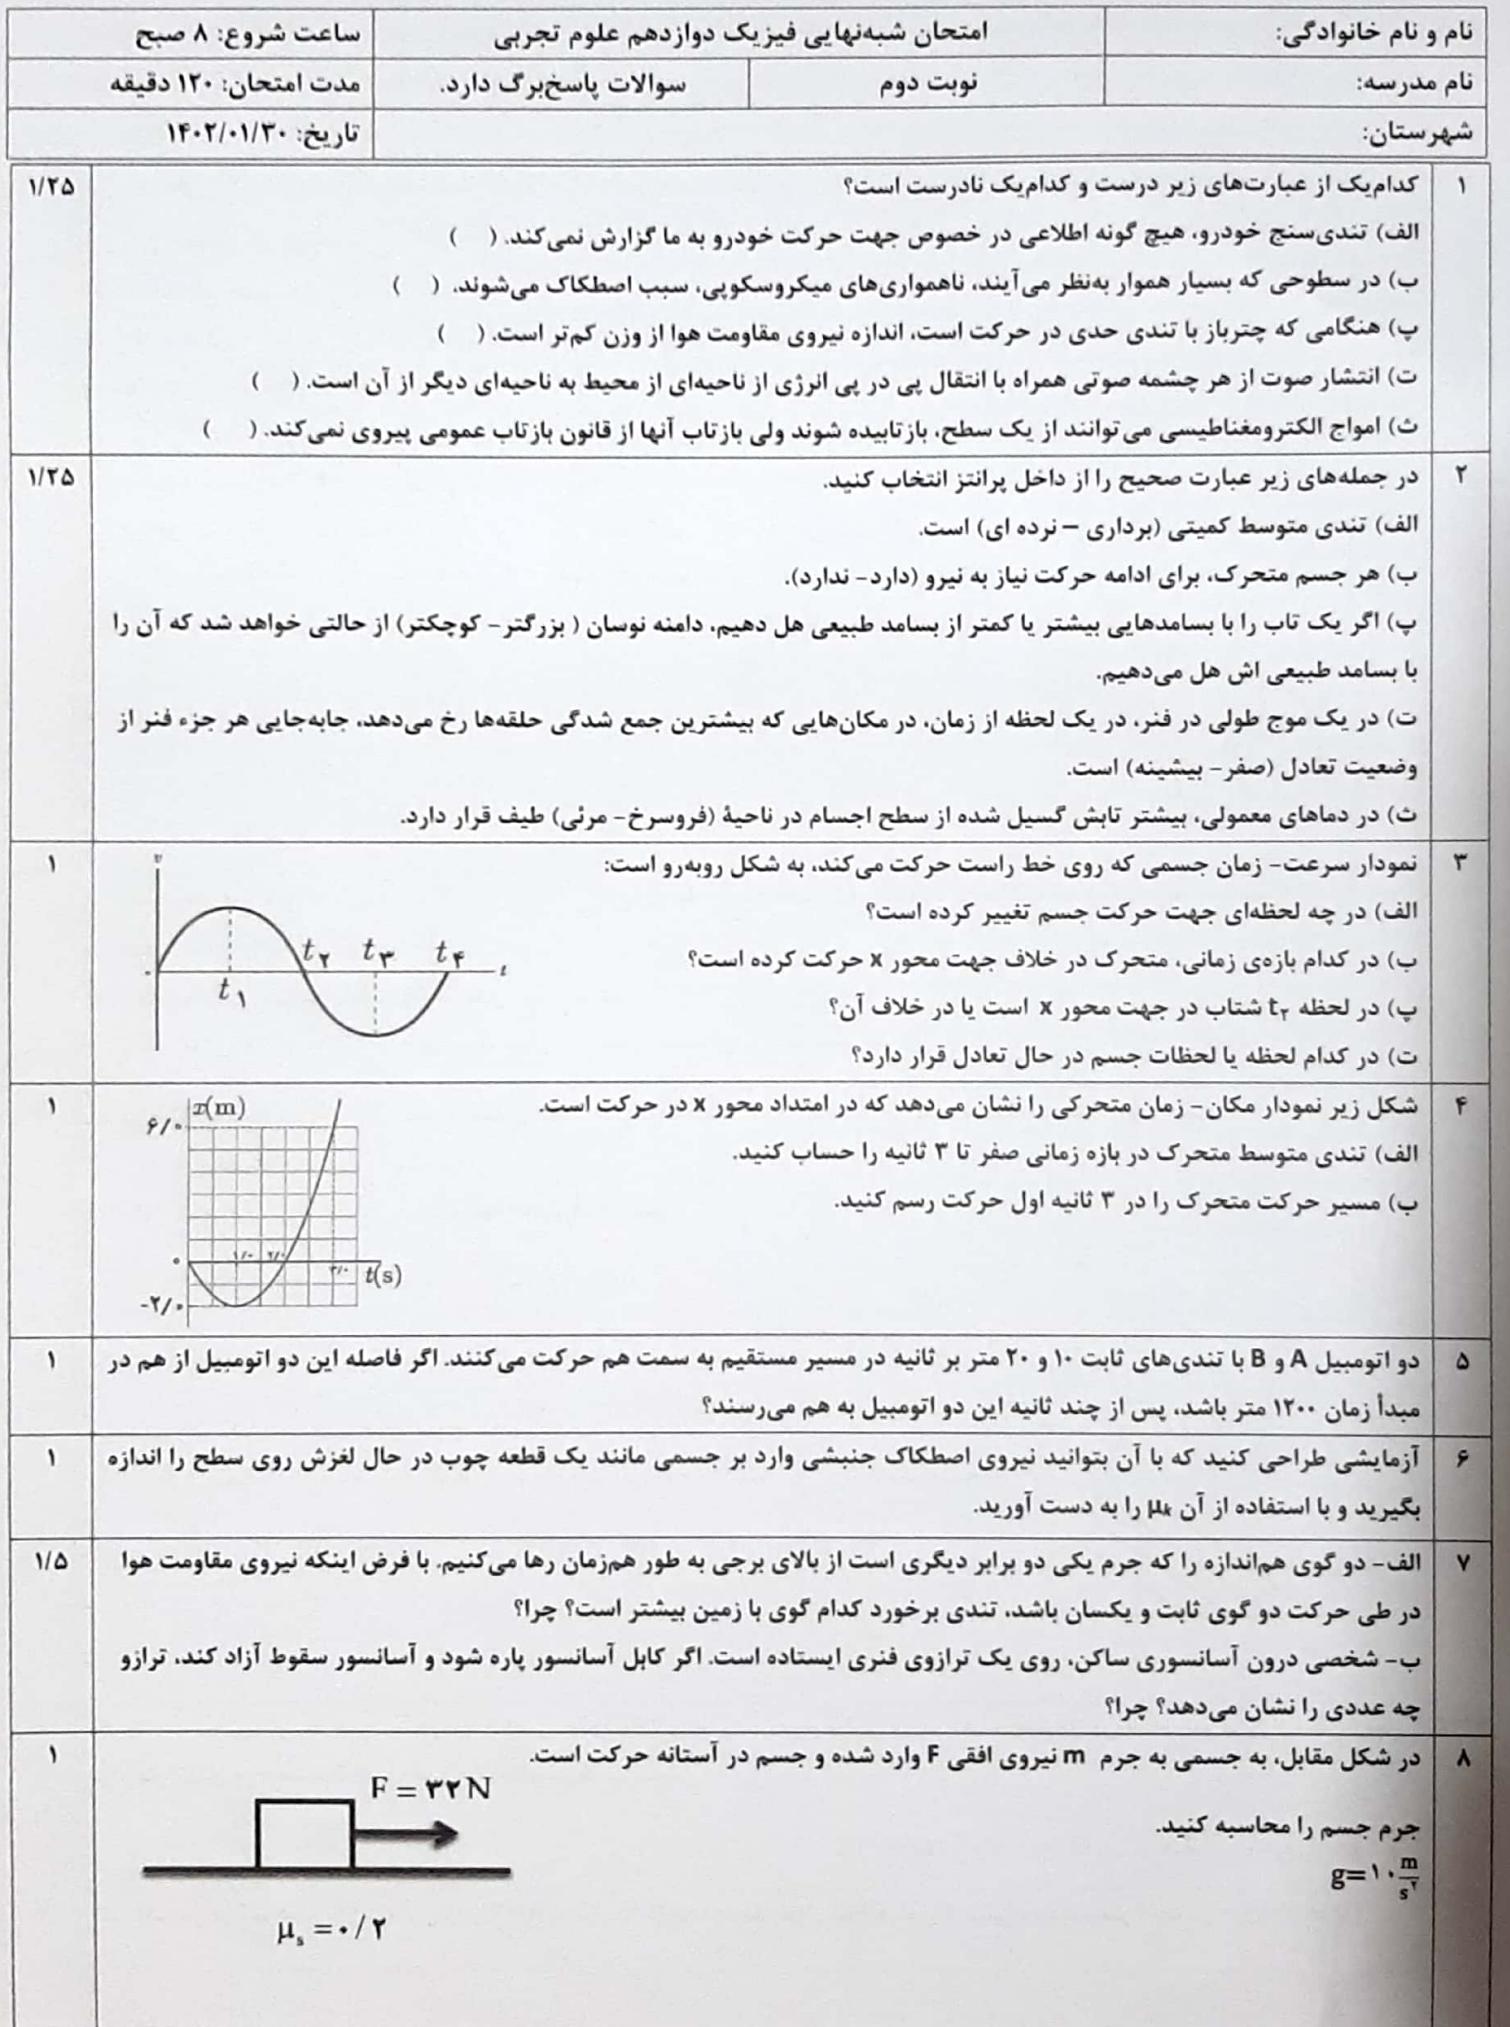 نام و نام خانوادگی:
امتحان شبه‌نهایی فیزیک دوازدهم علوم تجربی
ساعت شروع: ۸ صبح
نام مدرسه:
نوبت دوم
سوالات پاسخ‌برگ دارد.
مدت امتحان: ۱۲۰ دقیقه
شهرستان:
تاریخ: ۱۴۰۲/۰۱/۳۰
۱ کدام‌یک از عبارت‌های زیر درست و کدام‌یک نادرست است؟ ۱/۲۵
الف) تندی‌سنج خودرو، هیچ گونه اطلاعی در خصوص جهت حرکت خودرو به ما گزارش نمی‌کند. ( )
ب) در سطوحی که بسیار هموار به‌نظر می‌آیند، ناهمواری‌های میکروسکوپی، سبب اصطکاک می‌شوند. ( )
پ) هنگامی که چترباز با تندی حدی در حرکت است، اندازه نیروی مقاومت هوا از وزن کم‌تر است. ( )
ت) انتشار صوت از هر چشمه صوتی همراه با انتقال پی در پی انرژی از ناحیه‌ای از محیط به ناحیه‌ای دیگر از آن است. ( )
ث) امواج الکترومغناطیسی می‌توانند از یک سطح، بازتابیده شوند ولی بازتاب آنها از قانون بازتاب عمومی پیروی نمی‌کند. ( )
۲ در جمله‌های زیر عبارت صحیح را از داخل پرانتز انتخاب کنید. ۱/۲۵
الف) تندی متوسط کمیتی (برداری – نرده ای) است.
ب) هر جسم متحرک، برای ادامه حرکت نیاز به نیرو (دارد- ندارد).
پ) اگر یک تاب را با بسامدهایی بیشتر یا کمتر از بسامد طبیعی هل دهیم، دامنه نوسان ( بزرگتر- کوچکتر) از حالتی خواهد شد که آن را
با بسامد طبیعی اش هل می‌دهیم.
ت) در یک موج طولی در فنر، در یک لحظه از زمان، در مکان‌هایی که بیشترین جمع شدگی حلقه‌ها رخ می‌دهد، جابه‌جایی هر جزء فنر از
وضعیت تعادل (صفر- بیشینه) است.
ث) در دماهای معمولی، بیشتر تابش گسیل شده از سطح اجسام در ناحیهٔ (فروسرخ- مرئی) طیف قرار دارد.
۳ نمودار سرعت- زمان جسمی که روی خط راست حرکت می‌کند، به شکل روبه‌رو است: ۱
الف) در چه لحظه‌ای جهت حرکت جسم تغییر کرده است؟
ب) در کدام بازه‌ی زمانی، متحرک در خلاف جهت محور x حرکت کرده است؟
پ) در لحظه t۲ شتاب در جهت محور x است یا در خلاف آن؟
ت) در کدام لحظه یا لحظات جسم در حال تعادل قرار دارد؟
v
t۱ t۲ t۳ t۴ t
۴ شکل زیر نمودار مکان- زمان متحرکی را نشان می‌دهد که در امتداد محور x در حرکت است. ۱
الف) تندی متوسط متحرک در بازه زمانی صفر تا ۳ ثانیه را حساب کنید.
ب) مسیر حرکت متحرک را در ۳ ثانیه اول حرکت رسم کنید.
x(m)
۶/۰
۰ ۱/۰ ۲/۰ ۳/۰ t(s)
-۲/۰
۵ دو اتومبیل A و B با تندی‌های ثابت ۱۰ و ۲۰ متر بر ثانیه در مسیر مستقیم به سمت هم حرکت می‌کنند. اگر فاصله این دو اتومبیل از هم در ۱
مبدأ زمان ۱۲۰۰ متر باشد، پس از چند ثانیه این دو اتومبیل به هم می‌رسند؟
۶ آزمایشی طراحی کنید که با آن بتوانید نیروی اصطکاک جنبشی وارد بر جسمی مانند یک قطعه چوب در حال لغزش روی سطح را اندازه ۱
بگیرید و با استفاده از آن μk را به دست آورید.
۷ الف- دو گوی هم‌اندازه را که جرم یکی دو برابر دیگری است از بالای برجی به طور هم‌زمان رها می‌کنیم. با فرض اینکه نیروی مقاومت هوا ۱/۵
در طی حرکت دو گوی ثابت و یکسان باشد، تندی برخورد کدام گوی با زمین بیشتر است؟ چرا؟
ب- شخصی درون آسانسوری ساکن، روی یک ترازوی فنری ایستاده است. اگر کابل آسانسور پاره شود و آسانسور سقوط آزاد کند، ترازو
چه عددی را نشان می‌دهد؟ چرا؟
۸ در شکل مقابل، به جسمی به جرم m نیروی افقی F وارد شده و جسم در آستانه حرکت است. ۱
جرم جسم را محاسبه کنید.
g=۱۰ m/s۲
F = ۳۲ N
μs = ۰/۲